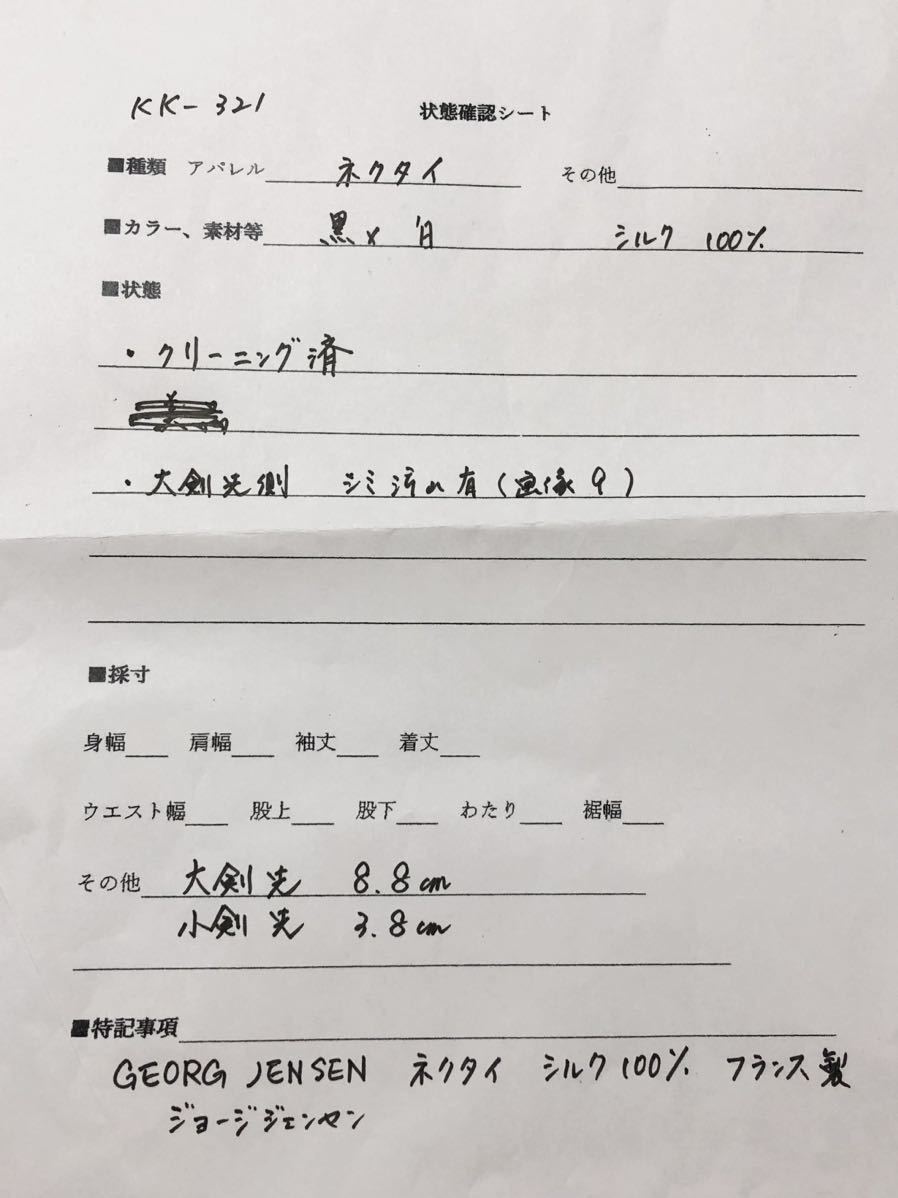 KK-321 状態確認シート
■種類 アパレル ネクタイ その他
■カラー、素材等 黒×白 シルク 100%
■状態
・クリーニング済
・大剣先側 シミ汚れ有(画像9)
■採寸
身幅 肩幅 袖丈 着丈
ウエスト幅 股上 股下 わたり 裾幅
その他 大剣先 8.8cm
小剣先 3.8cm
■特記事項
GEORG JENSEN ネクタイ シルク100% フランス製
ジョージジェンセン